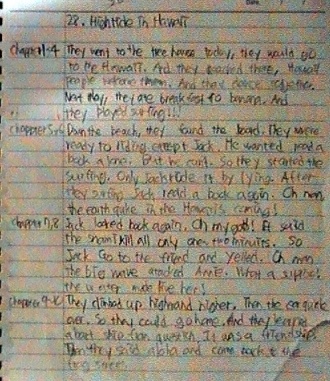 28. High tide In Hawaii
Chapter 1-4 They went to the tree house today, they would go
to the Hawaii. And they reached there, Hawaii
people welcome them. And they dance together.
Next day, they are breakfast to banana. And
they played surfing!!!
Chapter 5,6 Down the beach, they found the board. They were
ready to riding except Jack. He wanted read a
book alone. But he can't. So they started the
surfing. Only Jack ride it by lying. After
they surfing Jack read a book again. Oh man,
the earth quike in the Hawaii's coming!
Chapter 7,8 Jack looked back again. Oh my god! It said
the will all only one, two minutes. So
Jack Go to the friend and yelled. Oh man
the big wave atacked Annie. What a suprise!
the water move like her!
Chapter 9-10 They climbed up high and higher. Then the earquick
over. So they could go home. And they learned
about ship question. It was a friendships
Then they said aloha and come back to the
frog street.